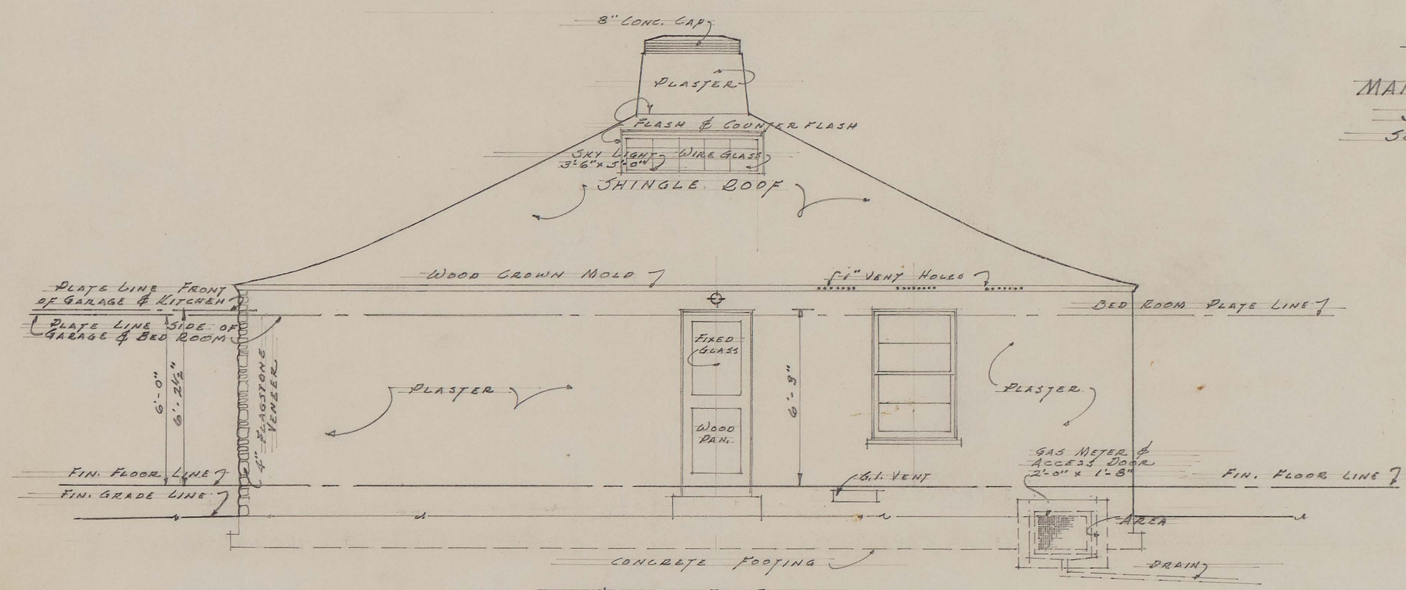 8" CONC. CAP
PLASTER
FLASH & COUNTER FLASH
SKY LIGHT - WIRE GLASS
3'-6" x 5'-0"
SHINGLE ROOF
WOOD CROWN MOLD
1" VENT HOLES
PLATE LINE FRONT
OF GARAGE & KITCHEN
PLATE LINE SIDE OF
GARAGE & BED ROOM
BED ROOM PLATE LINE
FIXED
GLASS
WOOD
PAN.
6'-0"
6'-2½"
4" FLAGSTONE
VENEER
PLASTER
6'-8"
PLASTER
GAS METER &
ACCESS DOOR
2'-0" x 1'-8"
FIN. FLOOR LINE
FIN. GRADE LINE
G.I. VENT
FIN. FLOOR LINE
AREA
CONCRETE FOOTING
DRAIN